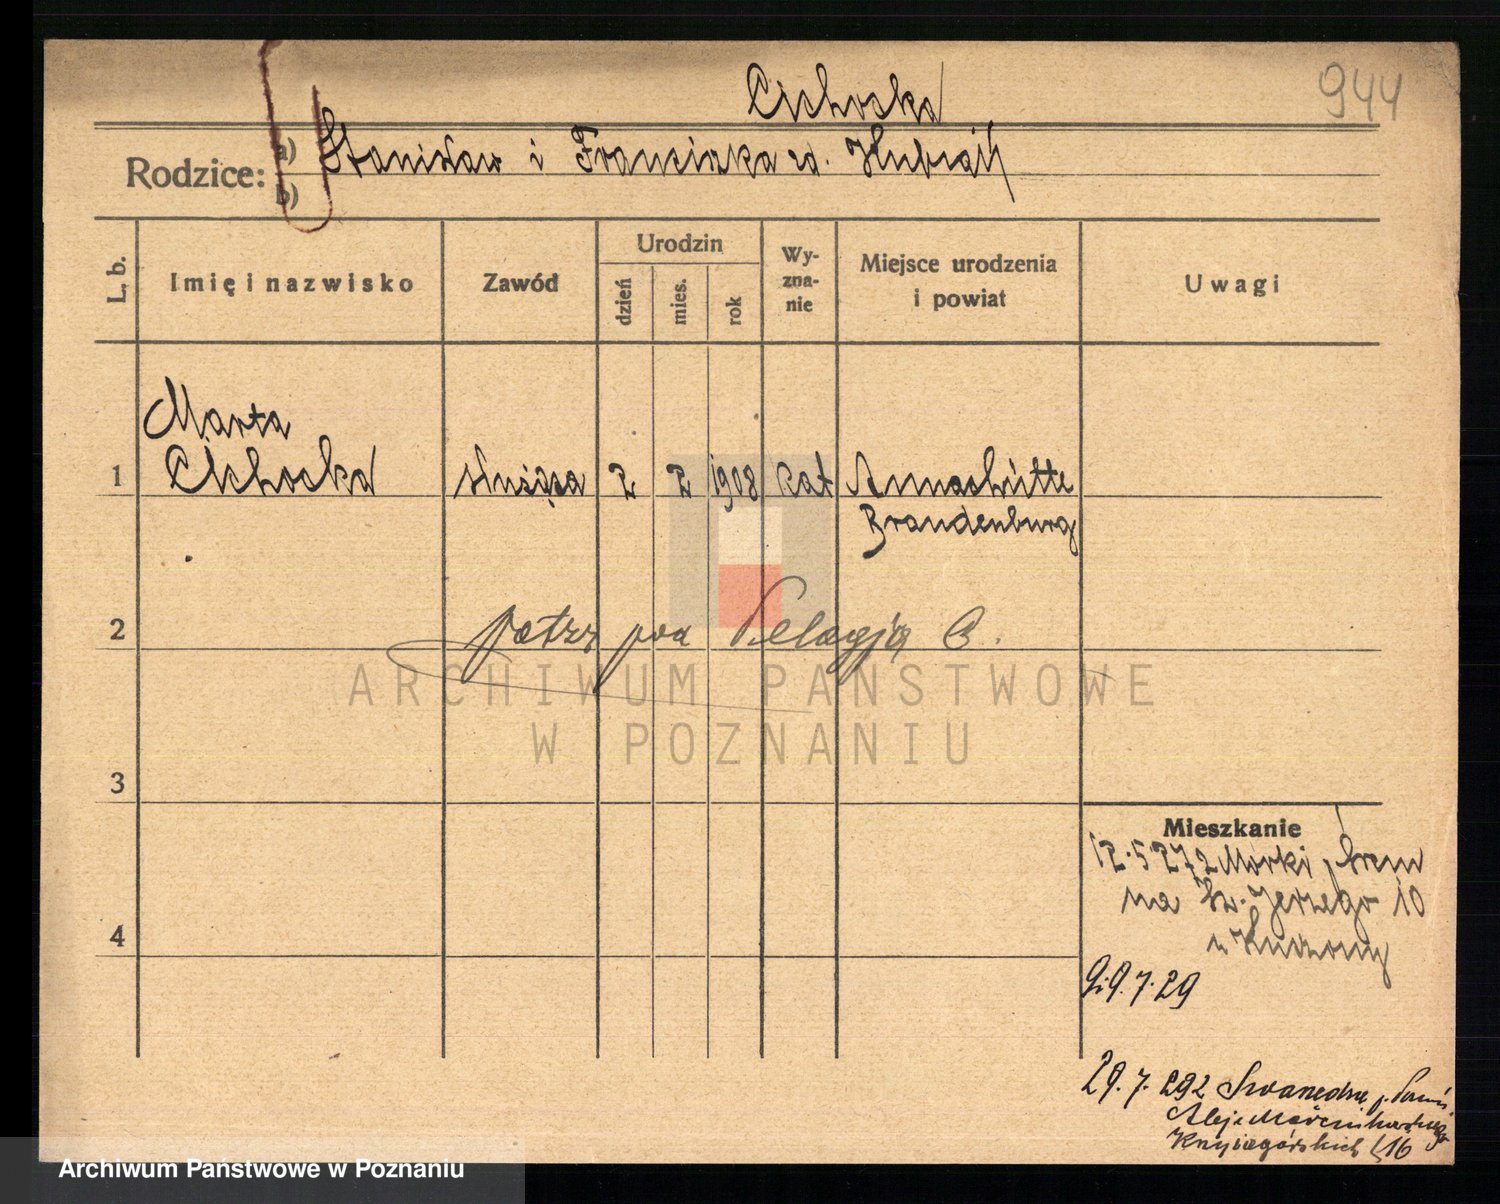 944
Cichocka
Rodzice:
a) Stanisław i Franciszka zd. Hubiak
b)
L. b.
Imię i nazwisko
Zawód
Urodzin
dzień
mies.
rok
Wy-
zna-
nie
Miejsce urodzenia
i powiat
Uwagi
Marta
1 Cichocka służąca 2 2 1908 kat Annahütte
Brandenburg
2 patrz pod Pelagją C.
ARCHIWUM PAŃSTWOWE
W POZNANIU
3
Mieszkanie
12.5.27 z Mórki, Śrem
na Św. Jerzego 10
4
9.7.29
29.7.29 z
Aleje Marcinkowskiego
16
Archiwum Państwowe w Poznaniu